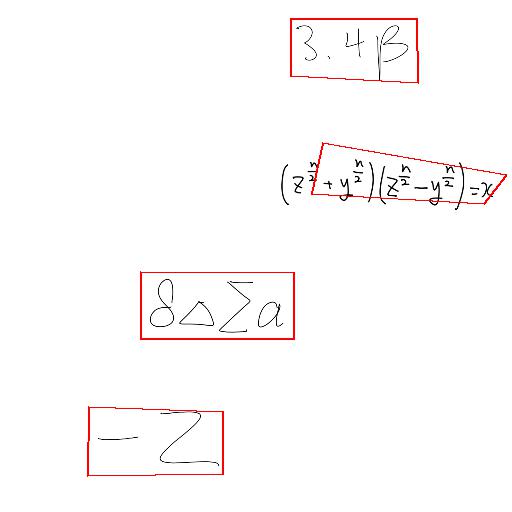 3.4β
(z^{n/2}+y^{n/2})(z^{n/2}-y^{n/2})=x
δΔΣa
-Z